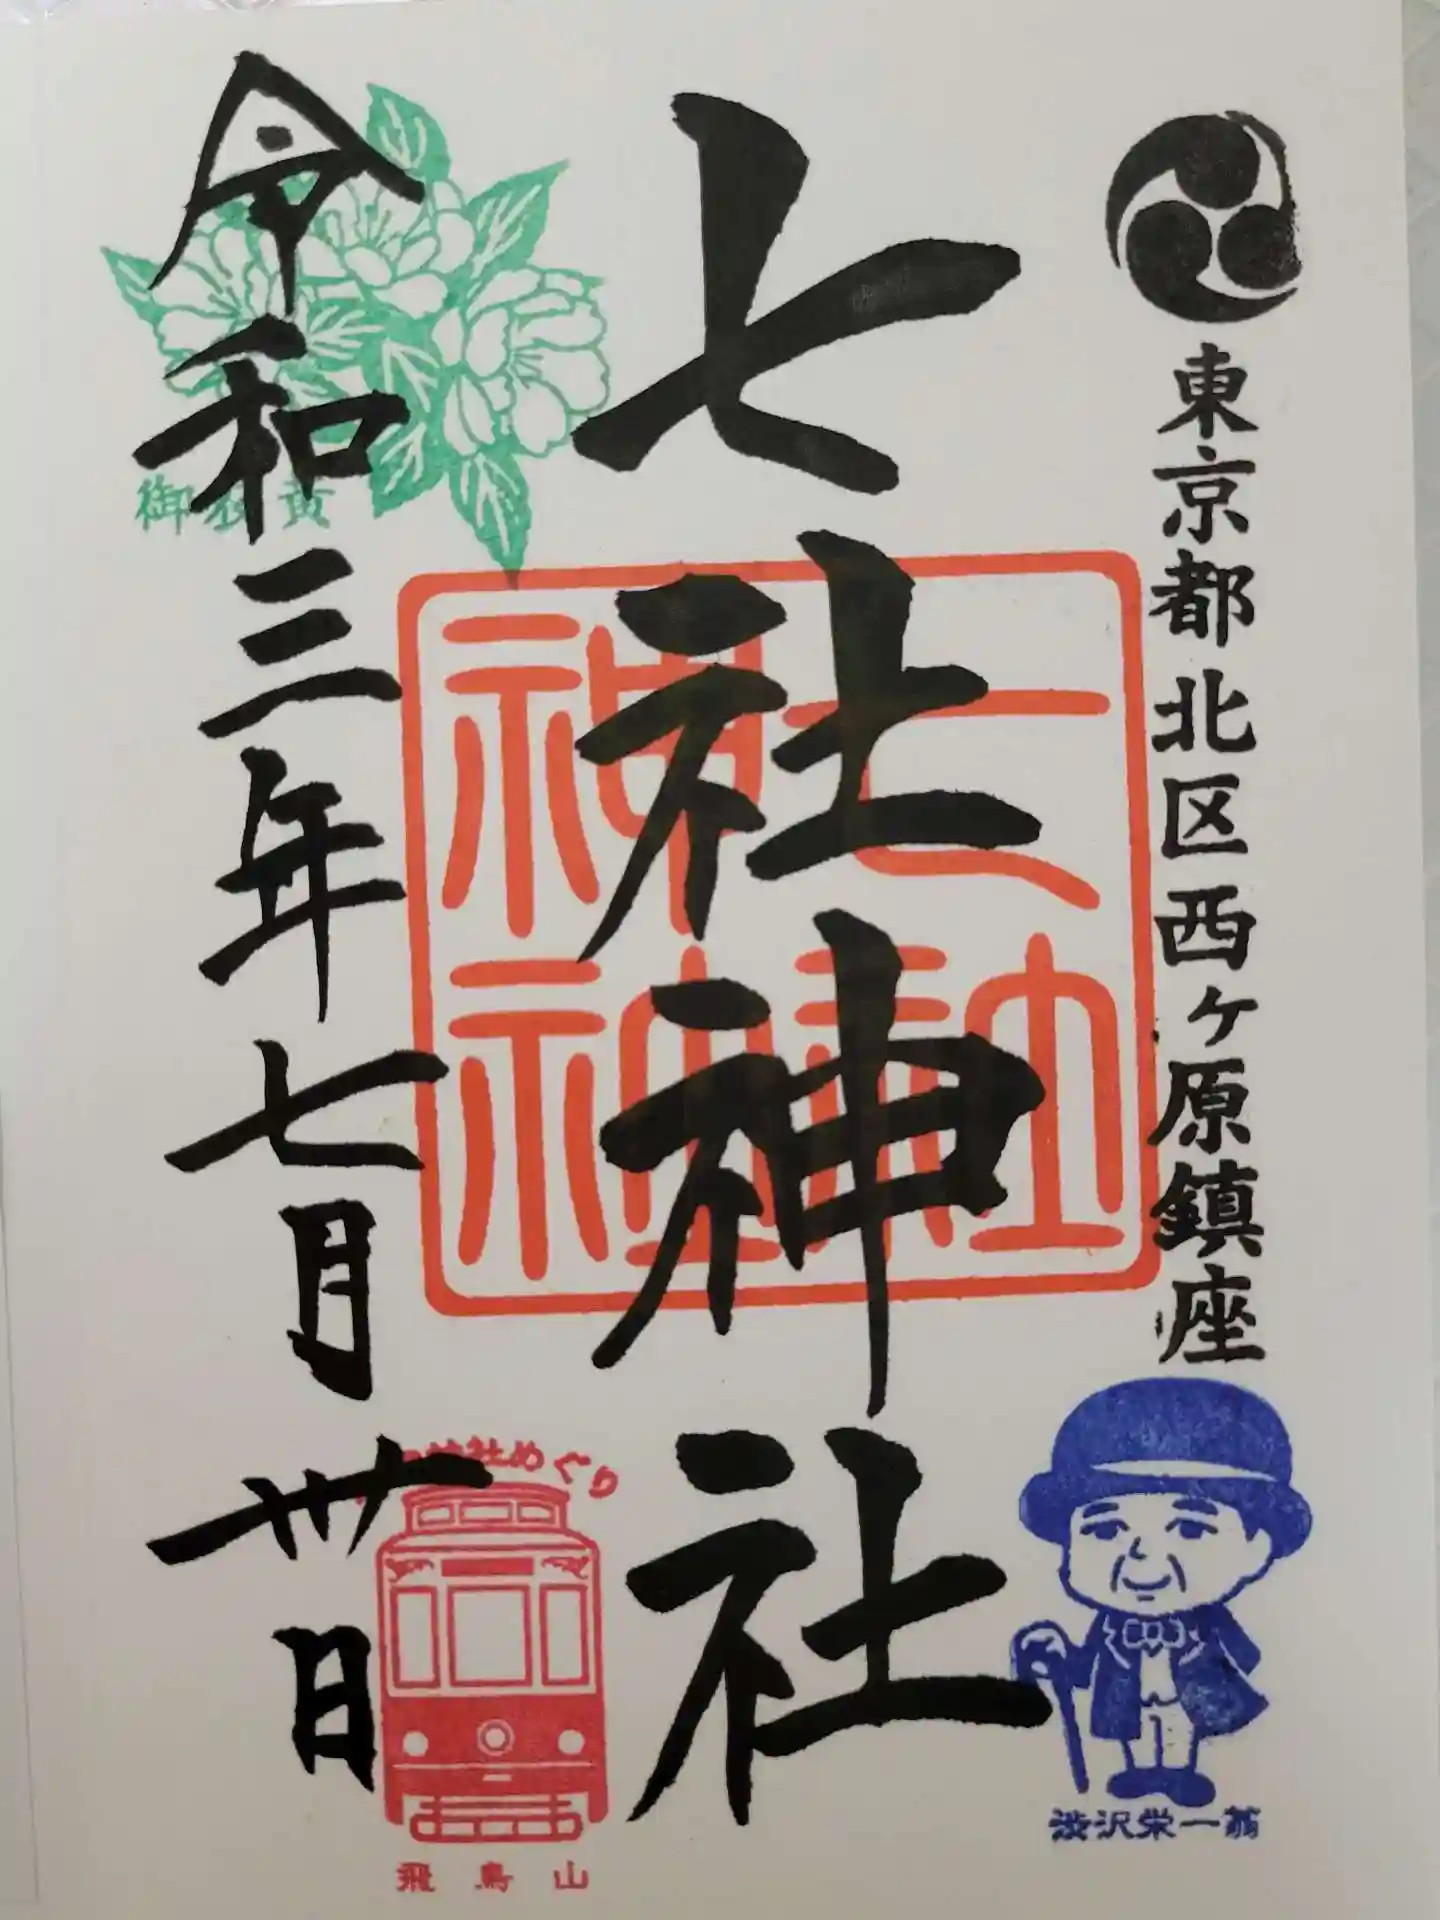 東京都北区西ヶ原鎮座
七社神社
令和三年七月卅日
御衣黄
七社
神社
社めぐり
飛鳥山
渋沢栄一翁